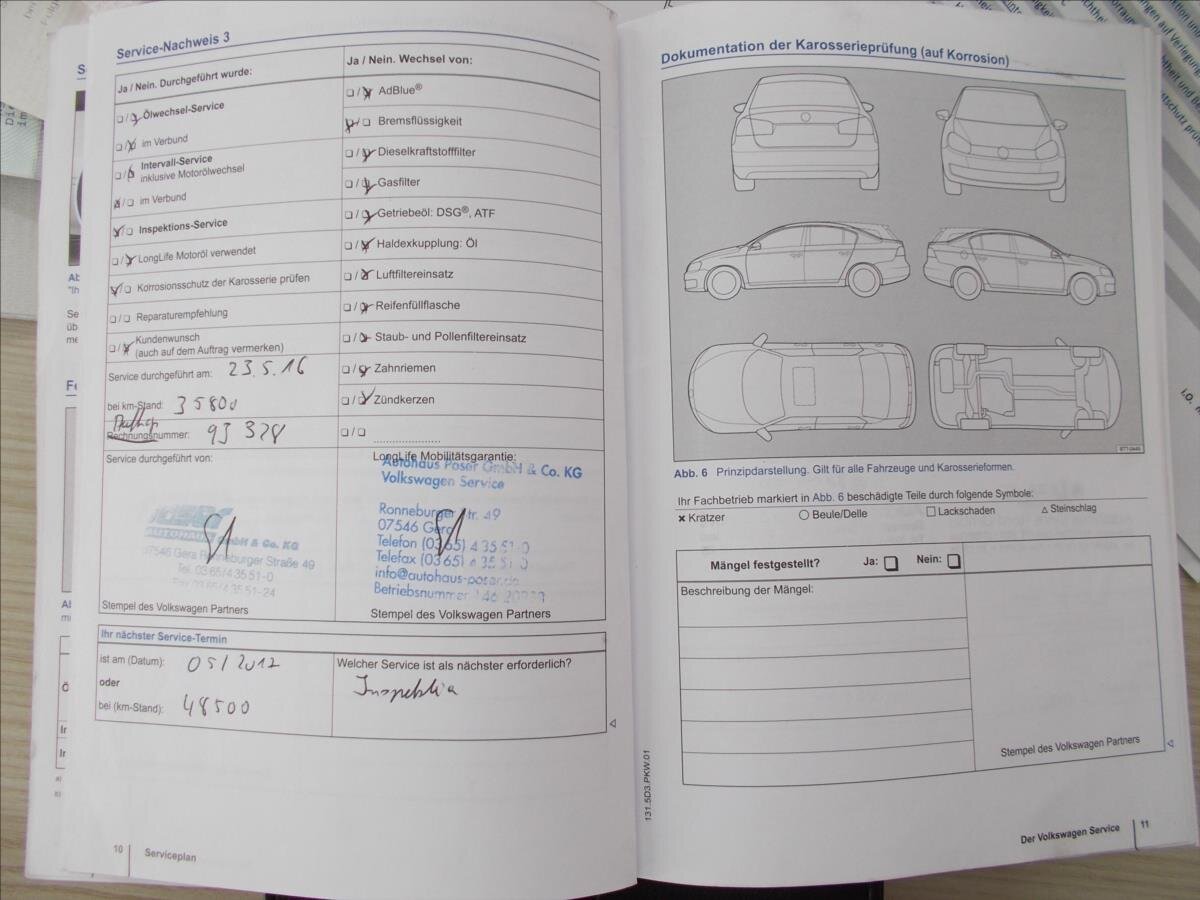 Service-Nachweis 3
Ja / Nein. Durchgeführt wurde:
Ölwechsel-Service
im Verbund
Intervall-Service
inklusive Motorölwechsel
im Verbund
Inspektions-Service
LongLife Motoröl verwendet
Korrosionsschutz der Karosserie prüfen
Reparaturempfehlung
Kundenwunsch
(auch auf dem Auftrag vermerken)
Service durchgeführt am: 23.5.16
bei km-Stand: 35800
Rechnungsnummer: 93 328
Ja / Nein. Wechsel von:
AdBlue®
Bremsflüssigkeit
Dieselkraftstofffilter
Gasfilter
Getriebeöl: DSG®, ATF
Haldexkupplung: Öl
Luftfiltereinsatz
Reifenfüllflasche
Staub- und Pollenfiltereinsatz
Zahnriemen
Zündkerzen
Service durchgeführt von:
Poser
AUTOHAUS GmbH & Co. KG
07546 Gera Ronneburger Straße 49
Tel. 03 65/4 35 51-0
Fax 03 65/4 35 51-24
Stempel des Volkswagen Partners
LongLife Mobilitätsgarantie:
Autohaus Poser GmbH & Co. KG
Volkswagen Service
Ronneburger Str. 49
07546 Gera
Telefon (03 65) 4 35 51-0
Telefax (03 65) 4 35 51-0
info@autohaus-poser.de
Betriebsnummer
Stempel des Volkswagen Partners
Ihr nächster Service-Termin
ist am (Datum): 05/2017
oder
bei (km-Stand): 48500
Welcher Service ist als nächster erforderlich?
Inspektion
10 Serviceplan
Dokumentation der Karosserieprüfung (auf Korrosion)
Abb. 6 Prinzipdarstellung. Gilt für alle Fahrzeuge und Karosserieformen.
Ihr Fachbetrieb markiert in Abb. 6 beschädigte Teile durch folgende Symbole:
Kratzer Beule/Delle Lackschaden Steinschlag
Mängel festgestellt? Ja: Nein:
Beschreibung der Mängel:
Stempel des Volkswagen Partners
131.5D3.PKW.01
Der Volkswagen Service 11